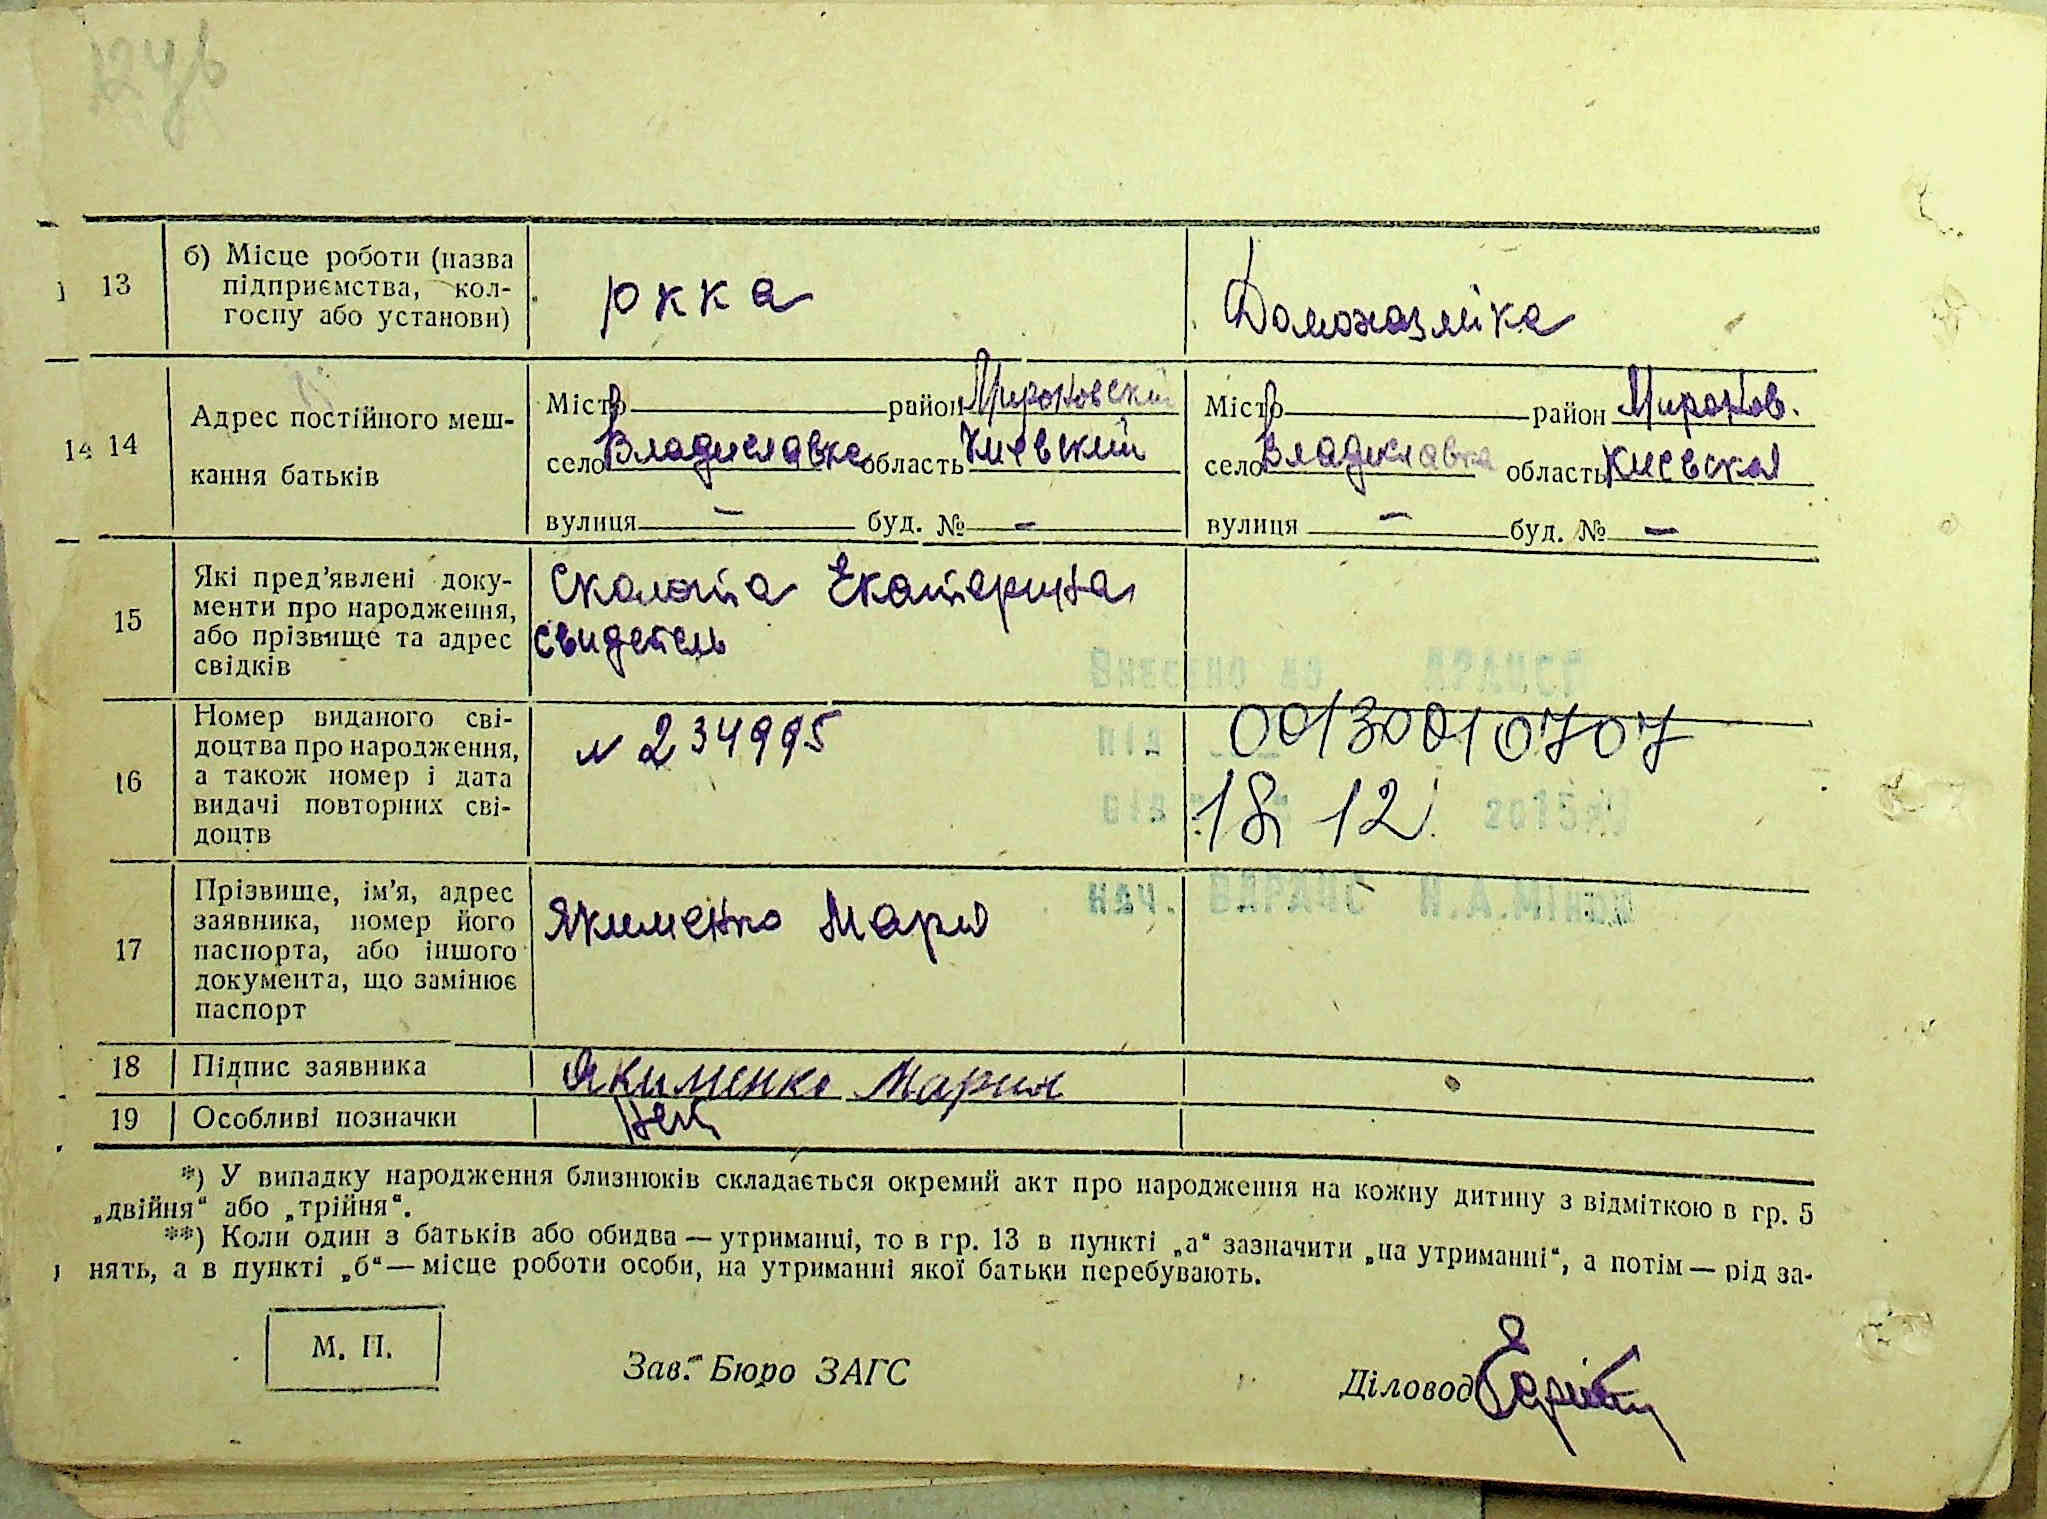 13 б) Місце роботи (назва
підприємства, кол-
госпу або установи)
ркка
Домохазяйка
14 14 Адрес постійного меш-
кання батьків
Місто район Мироновский
село Владиславка область Киевский
вулиця — буд. № —
Місто район Миронов.
село Владиславка область Киевская
вулиця — буд. № —
15 Які пред’явлені доку-
менти про народження,
або прізвище та адрес
свідків
Екатерина
свидетель
Внесено до ДРАЦСГ
16 Номер виданого сві-
доцтва про народження,
а також номер і дата
видачі повторних сві-
доцтв
№ 234995
під 00130010707
від 18 12 2015
нач. ВДРАЦС
17 Прізвище, ім’я, адрес
заявника, номер його
паспорта, або іншого
документа, що замінює
паспорт
Якименко Мария
18 Підпис заявника
Якименко Мария
19 Особливі позначки
Нет
*) У випадку народження близнюків складається окремий акт про народження на кожну дитину з відміткою в гр. 5
„двійня“ або „трійня“.
**) Коли один з батьків або обидва — утриманці, то в гр. 13 в пункті „а“ зазначити „на утриманні“, а потім — рід за-
нять, а в пункті „б“ — місце роботи особи, на утриманні якої батьки перебувають.
М. П.
Зав. Бюро ЗАГС
Діловод